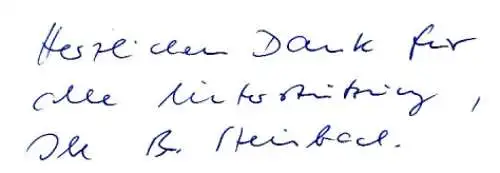 Herzlichen Dank für
alle Unterstützung,
Ihr B. Steinbach.